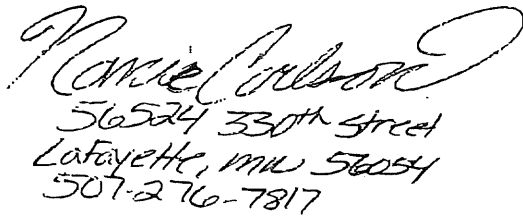 Nancie Carlson
56524 330th Street
LaFayette, MN 56054
507-276-7817